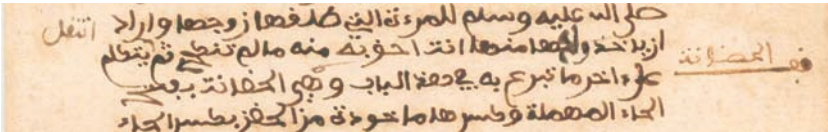 صلى الله عليه وسلم للمرءة التي طلقها زوجها واراد
انتقل
ان ياخذ ولدها منها انت احق به منه ما لم تنكحي ثم يتكلم
الحضانة
على اخر ما تبرع به في هذا الباب وهي الحضانة بفتح
الحاء المهملة وكسرها ماخوذة من الحضن بكسر الحاء